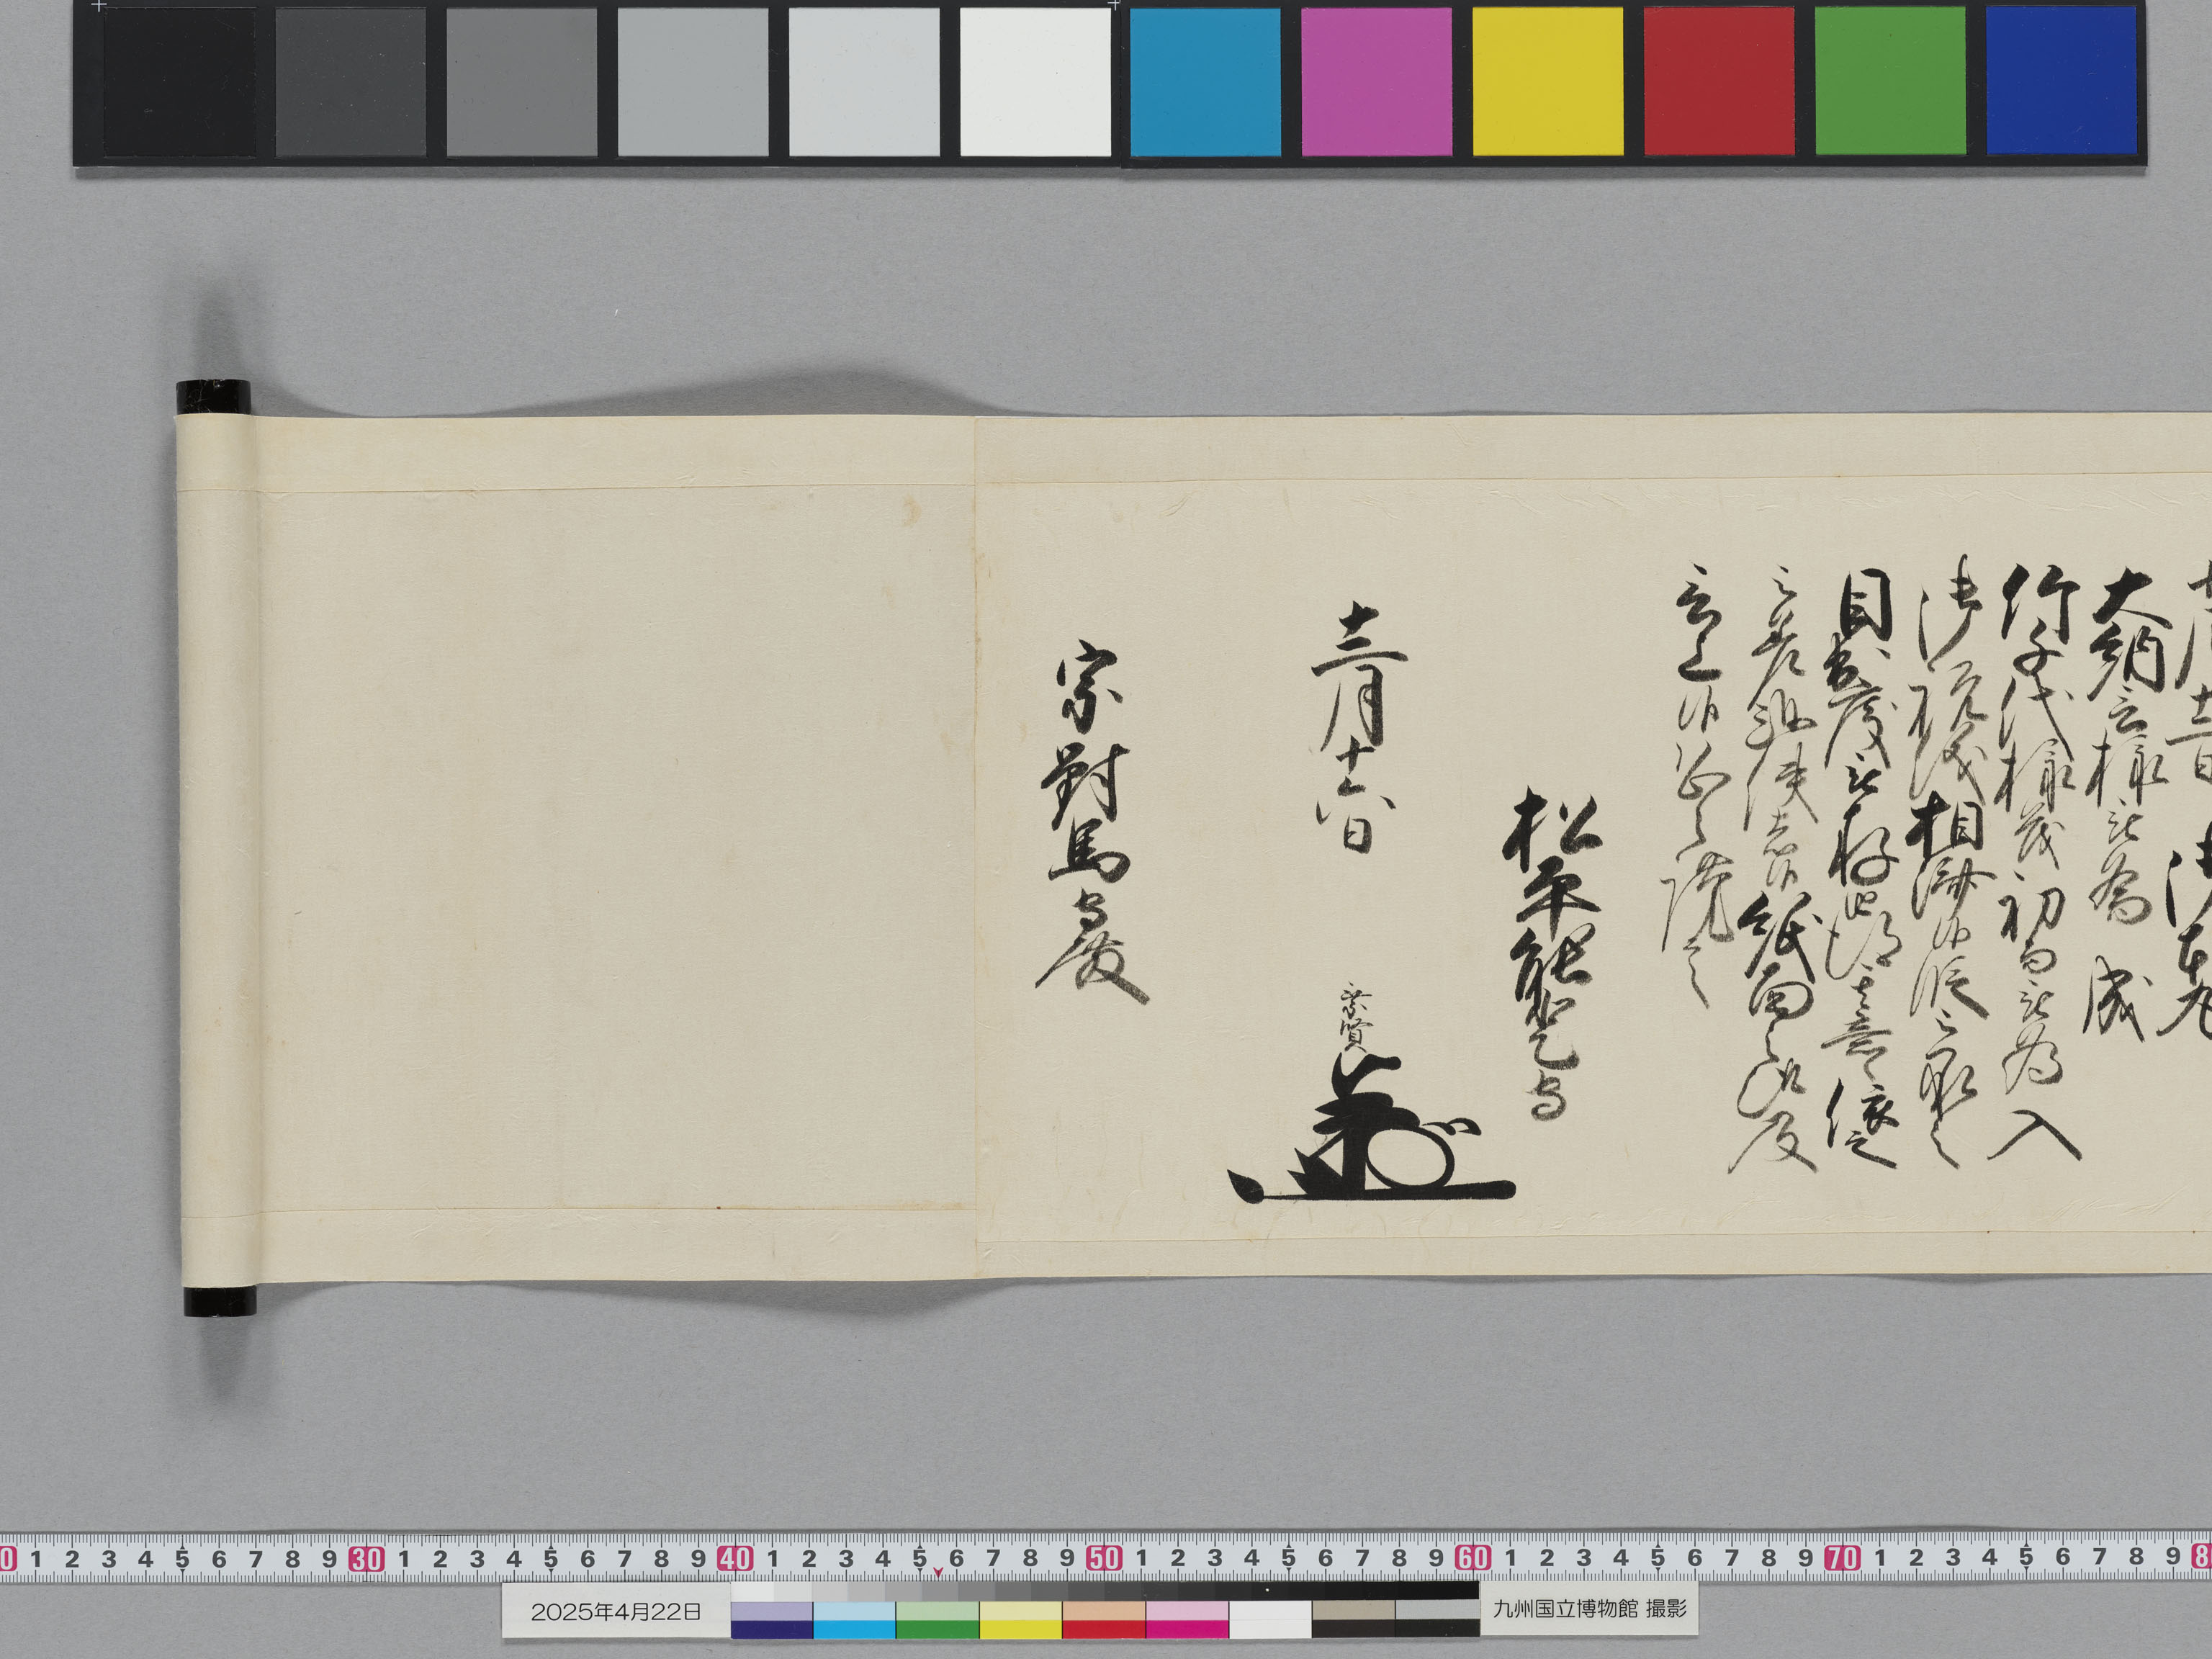 大納言様被為 成
竹千代様最初而被為 入
御祝儀相濟候段被承之
目出度被存旨得其意候依之
差越使者候紙面之趣及
言上候恐々謹言
松平能登守
十二月十六日
乗賢
宗對馬守殿
0 1 2 3 4 5 6 7 8 9 30 1 2 3 4 5 6 7 8 9 40 1 2 3 4 5 6 7 8 9 50 1 2 3 4 5 6 7 8 9 60 1 2 3 4 5 6 7 8 9 70 1 2 3 4 5 6 7 8 9
2025年4月22日
九州国立博物館 撮影